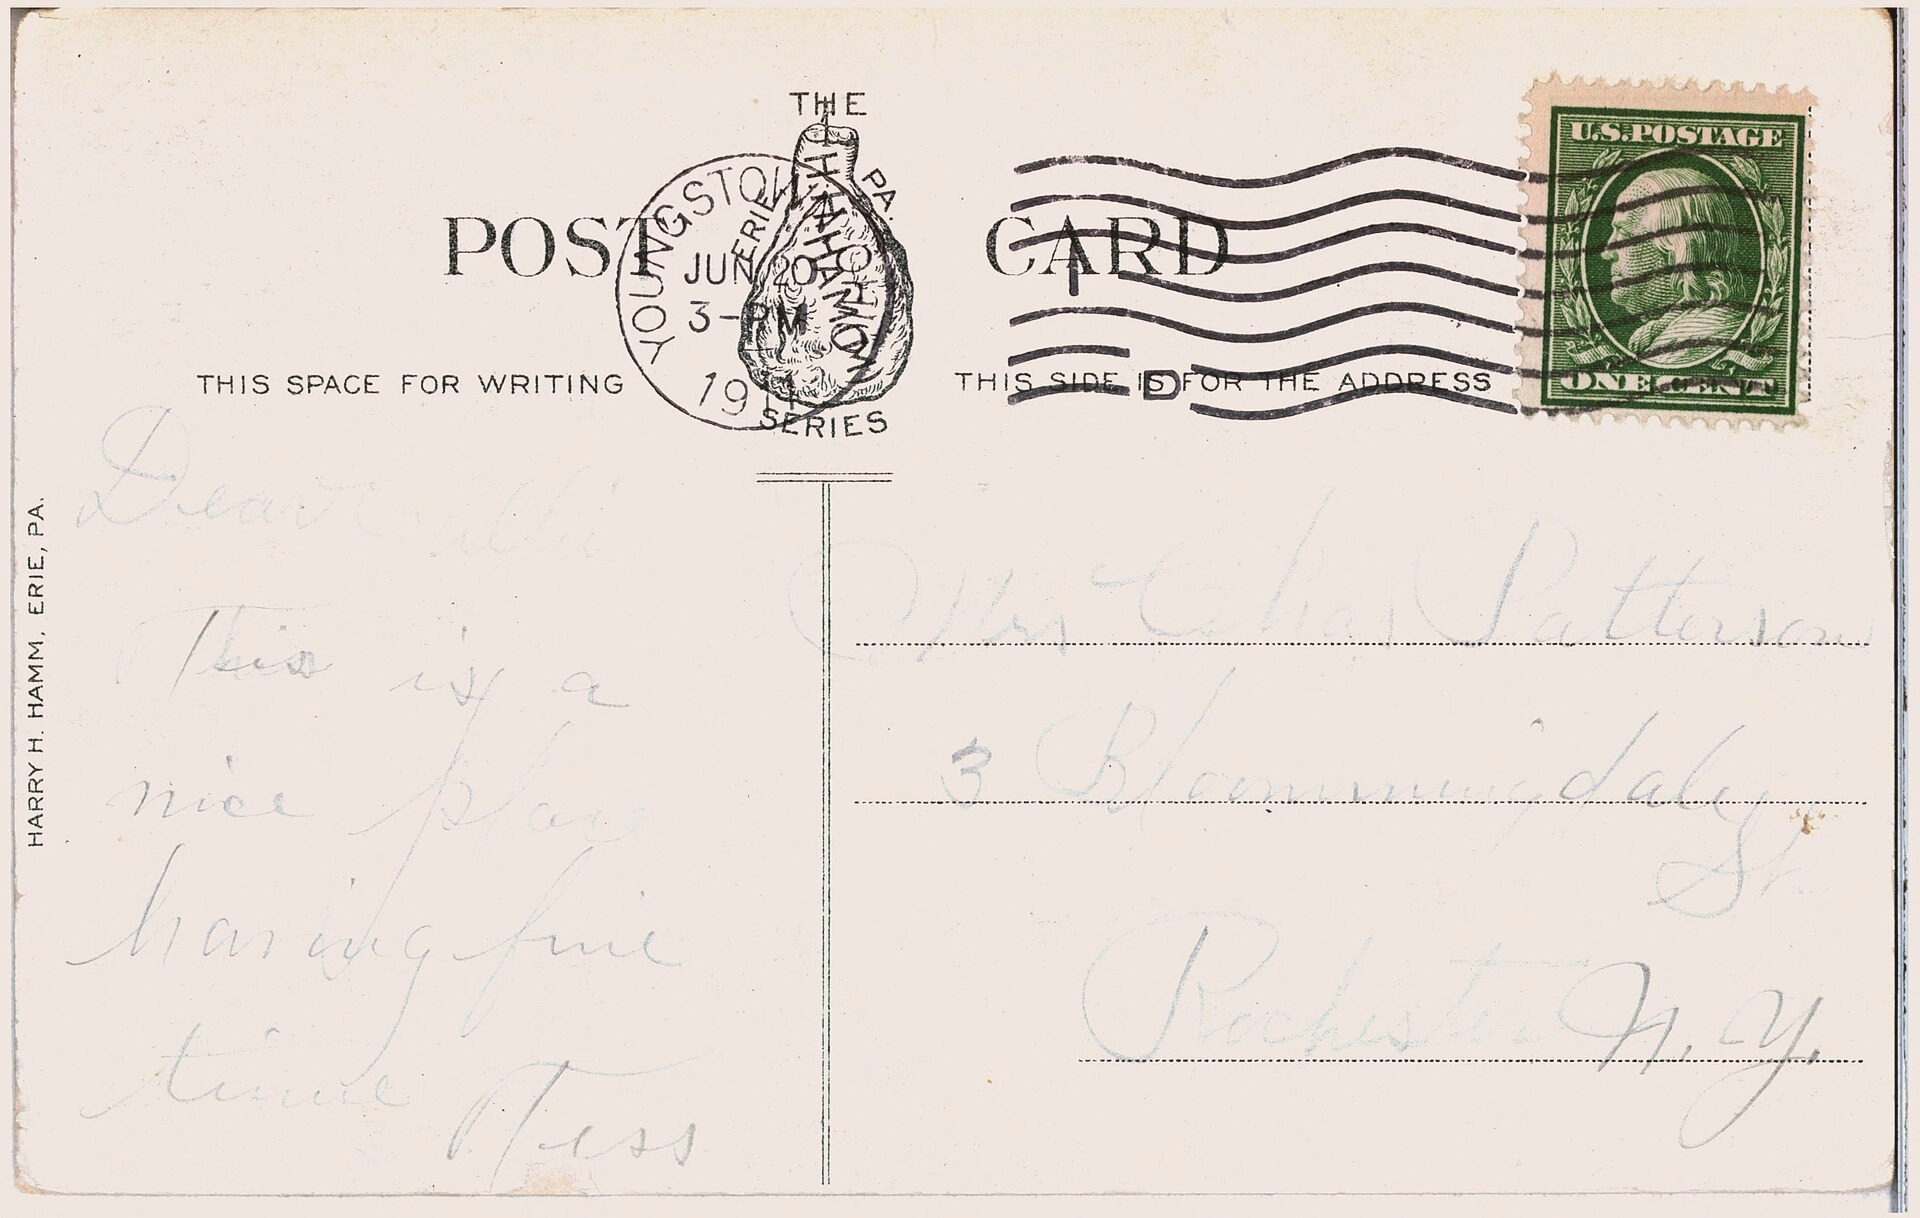 THE
HAMM
ERIE PA.
SERIES
YOUNGSTOWN OHIO
JUN 20
3-PM
1911
POST CARD
U.S. POSTAGE
ONE CENT
D
THIS SPACE FOR WRITING
THIS SIDE IS FOR THE ADDRESS
HARRY H. HAMM, ERIE, PA.
Dear
This is a
nice place
having fine
time Tess
Mrs Chas Patterson
3 Bloomingdale
St.
Rochester N.Y.